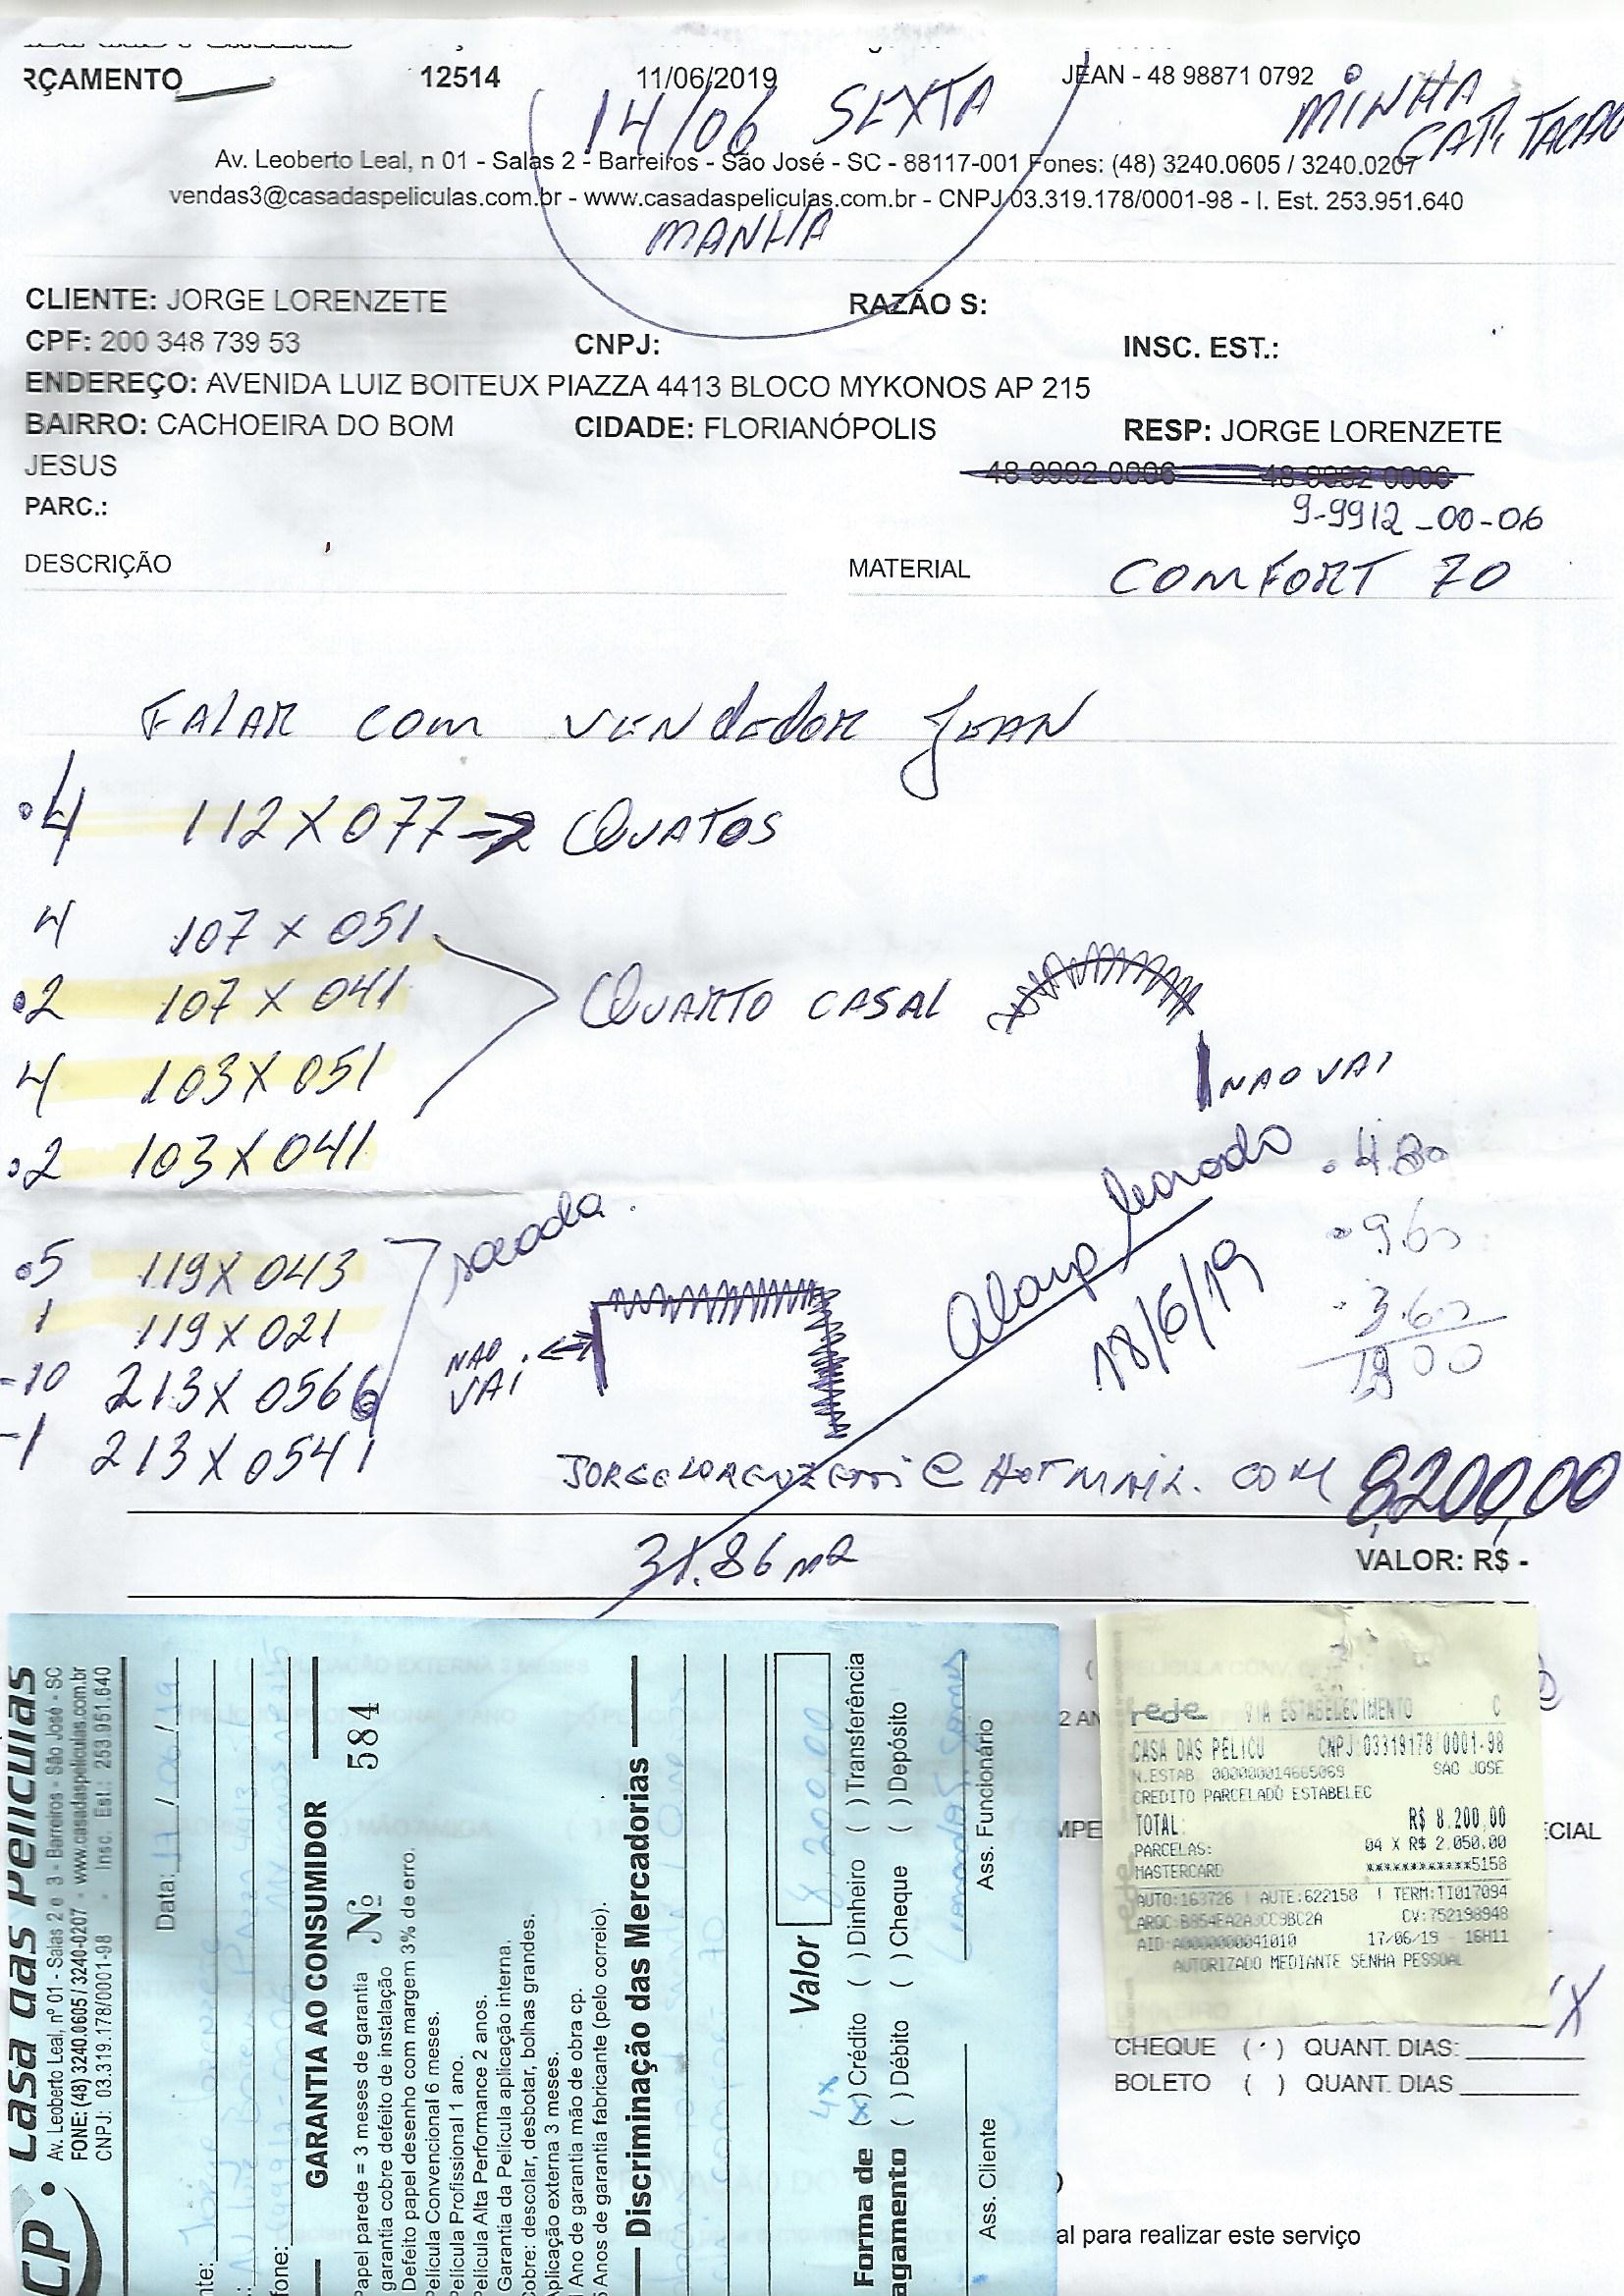 RÇAMENTO 12514 11/06/2019 JEAN - 48 98871 0792
14/06 SEXTA
MANHA
MINHA
CAPITACAO
Av. Leoberto Leal, n 01 - Salas 2 - Barreiros - São José - SC - 88117-001 Fones: (48) 3240.0605 / 3240.0207
vendas3@casadaspeliculas.com.br - www.casadaspeliculas.com.br - CNPJ 03.319.178/0001-98 - I. Est. 253.951.640
CLIENTE: JORGE LORENZETE RAZÃO S:
CPF: 200 348 739 53 CNPJ: INSC. EST.:
ENDEREÇO: AVENIDA LUIZ BOITEUX PIAZZA 4413 BLOCO MYKONOS AP 215
BAIRRO: CACHOEIRA DO BOM CIDADE: FLORIANÓPOLIS RESP: JORGE LORENZETE
JESUS 48 9992 0006 48 9992 0006
PARC.: 9-9912-00-06
DESCRIÇÃO MATERIAL COMFORT 70
FALAR COM VENDEDOR JEAN
4 112X077 → QUATOS
4 107 X 051
2 107 X 041 QUARTO CASAL
4 103X051 NAO VAI
2 103X041
5 119X043 sacada
1 119X021
NAO VAI
-10 213X0566
-1 213X0541
18/6/19
4.80
9.60
3.60
1800
JORGELORENZETTI@HOTMAIL.COM 8,200,00
31.86 m2 VALOR: R$ -
CP. Casa das Películas
Av. Leoberto Leal, nº 01 - Salas 2 e 3 - Barreiros - São José - SC
FONE: (48) 3240.0605 / 3240-0207 - www.casadaspeliculas.com.br
CNPJ: 03.319.178/0001-98 - Insc. Est.: 253.951.640
Data: 17/06/19
nte: Jorge Lorenzete
fone:
GARANTIA AO CONSUMIDOR Nº 584
Papel parede = 3 meses de garantia
garantia cobre defeito de instalação
Defeito papel desenho com margem 3% de erro.
Película Convencional 6 meses.
Película Profissional 1 ano.
Película Alta Performance 2 anos.
Garantia da Película aplicação interna.
Cobre: descolar, desbotar, bolhas grandes.
Aplicação externa 3 meses.
1 Ano de garantia mão de obra cp.
5 Anos de garantia fabricante (pelo correio).
Discriminação das Mercadorias
Valor 8.200,00
4x
Forma de (x) Crédito ( ) Dinheiro ( ) Transferência
agamento ( ) Débito ( ) Cheque ( ) Depósito
Ass. Cliente Ass. Funcionário
rede VIA ESTABELECIMENTO C
CASA DAS PELICU CNPJ:03319178/0001-98
N.ESTAB. 000000014665069 SAO JOSE
CREDITO PARCELADO ESTABELEC
TOTAL: R$ 8.200,00
PARCELAS: 04 X R$ 2.050,00
MASTERCARD ************5158
AUTO:163726 | AUTE:622158 | TERM:TI017094
ARQC:B854FA2A3CC9BC2A CV:752198948
AID:A0000000041010 17/06/19 - 16H11
AUTORIZADO MEDIANTE SENHA PESSOAL
2 AN
MPE
ECIAL
X
CHEQUE ( ) QUANT. DIAS:
BOLETO ( ) QUANT. DIAS
al para realizar este serviço